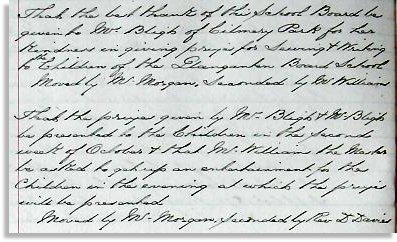 That the best thanks of this School Board be
given to Mrs. Bligh of Cilmery Park for her
kindness in giving prizes for Sewing & Knitting
to the Children of the Llanganten Board School
Moved by Mr. Morgan, Seconded by Mr. Williams
That the prizes given by Mr. Bligh & Mrs. Bligh
be presented to the Children in the second
week of October & that Mr. Williams the Master
be asked to get up an entertainment for the
Children in the evening at which the prizes
will be presented
Moved by Mr. Morgan, seconded by Rev. D. Davies